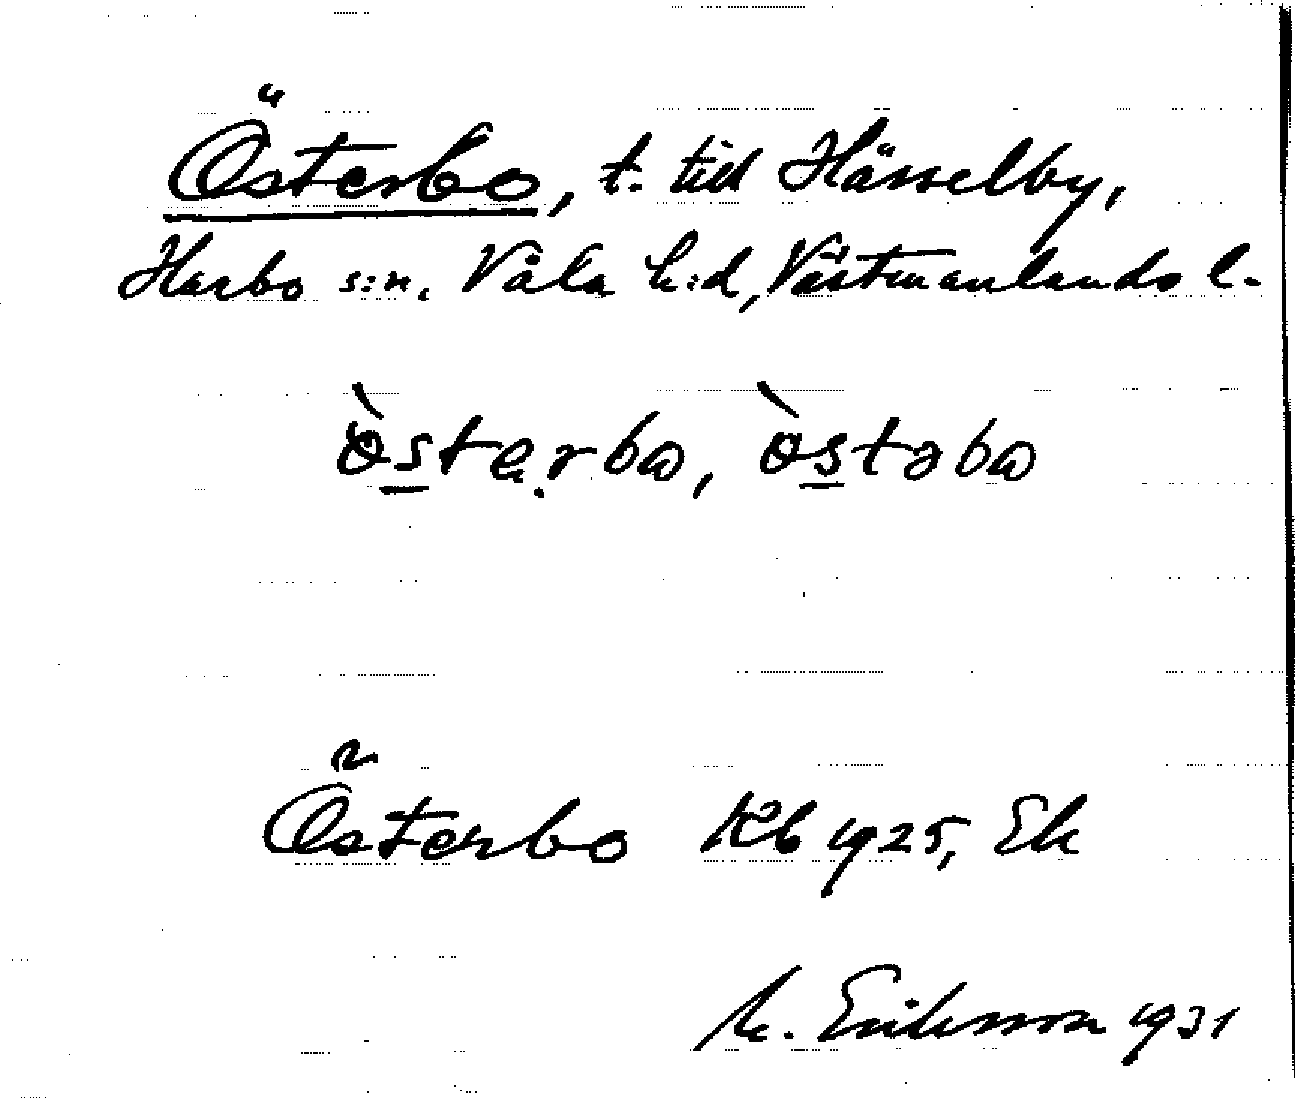 Österbo, t. till Hässelby,
Harbo s:n. Våla h:d, Västmanlands l.
ö̀ste̞rbω, ö̀stəbω
Österbo Kb 1925, Ek
M. Eriksson 1931